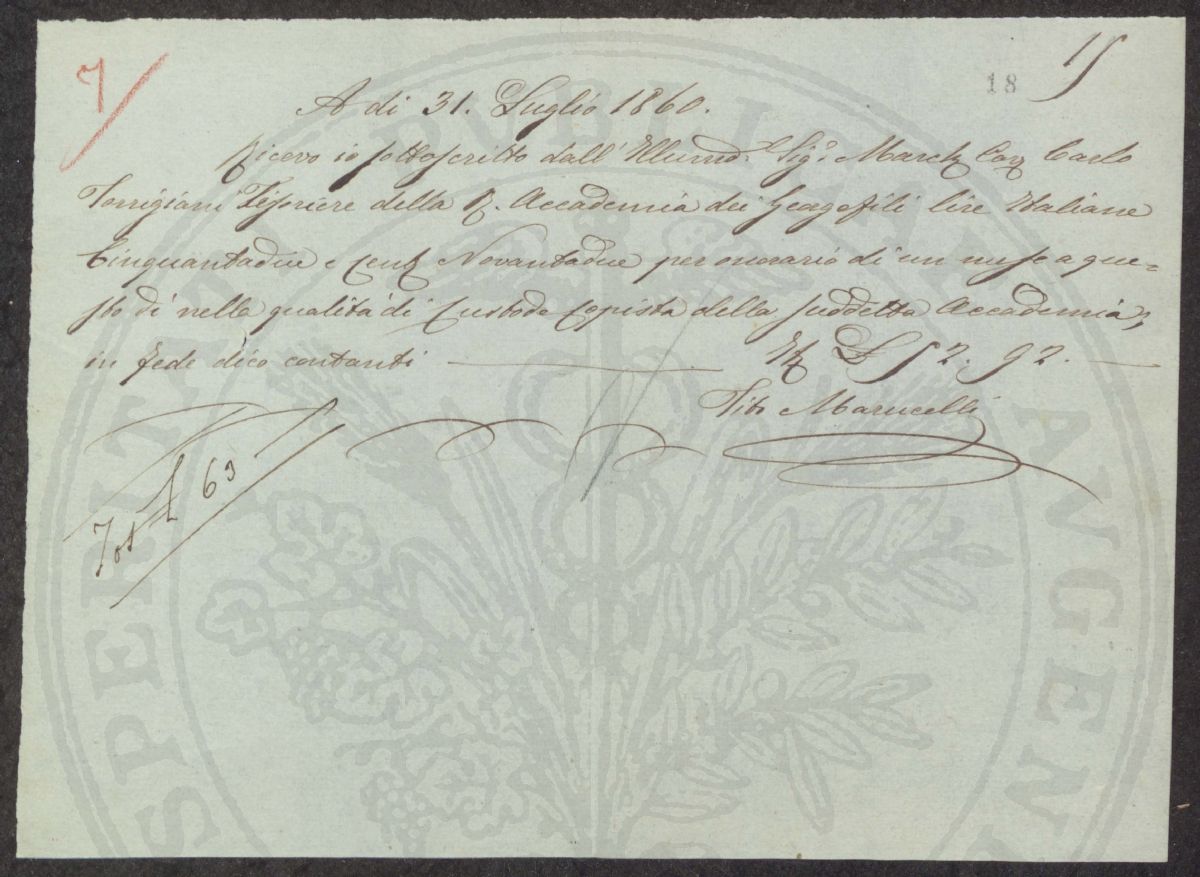 7
15
18
A dì 31. Luglio 1860.
Ricevo io sottoscritto dall' Illumo. Sigr. March Cav Carlo
Torrigiani Tesoriere della R. Accademia dei Georgofili lire Italiane
Cinquantadue e Cent Novantadue per onorario di un mese a que=
sto dì nella qualità di Custode Copista della suddetta Accademia,
in fede dico contanti — £ 52. 92. —
Tito Marucelli
Tos £ 63
PROSPERITATI PUBLICAE AUGENDAE